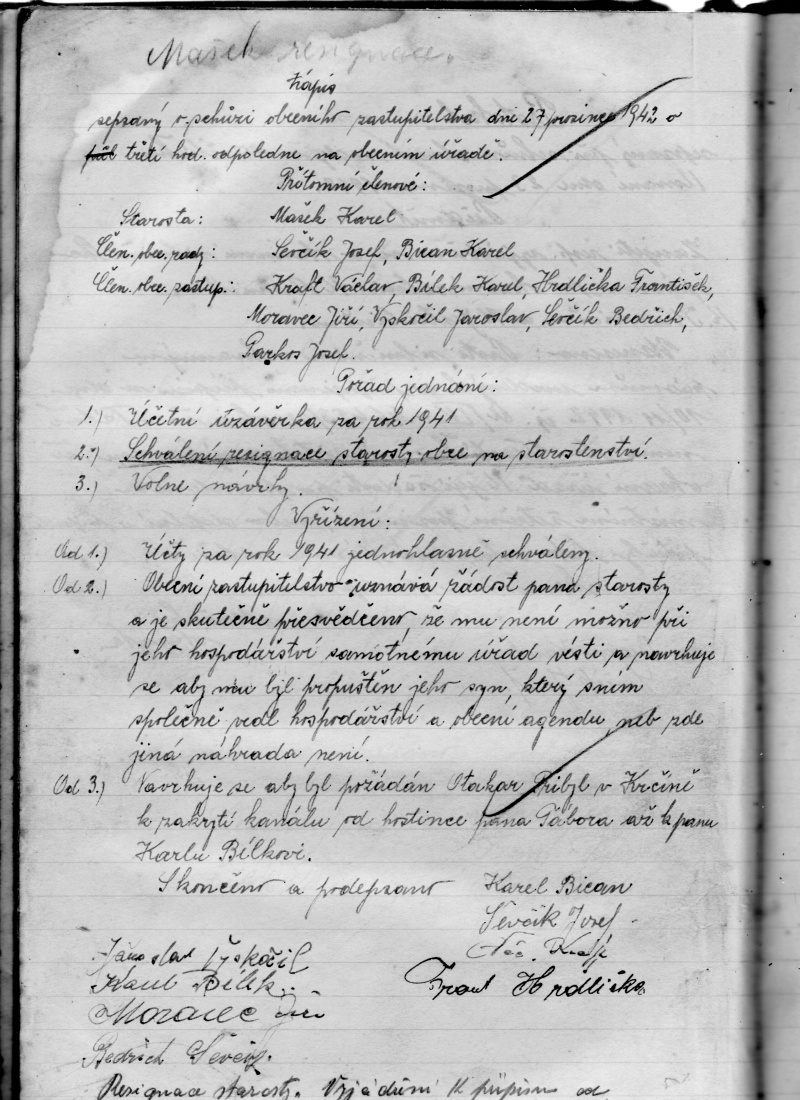 Mašek resignace.
Zápis
sepsaný o schůzi obecního zastupitelstva dne 27 prosince 1942 o
půl třetí hod. odpoledne na obecním úřadě.
Přítomní členové:
Starosta: Mašek Karel
Člen. obec. rady: Ševčík Josef, Bican Karel
Člen. obec. zastup.: Kraft Václav, Bílek Karel, Hrdlička František,
Moravec Jiří, Vyskočil Jaroslav, Ševčík Bedřich,
Parkos Josef.
Pořad jednání:
1.) Účetní uzávěrka za rok 1941
2.) Schválení resignace starosty obce na starostenství.
3.) Volne návrhy.
Vyřízení:
Ad 1.) Účty za rok 1941 jednohlasně schváleny.
Od 2.) Obecní zastupitelstvo uznává žádost pana starosty
a je skutečně přesvědčeno, že mu není možno při
jeho hospodářství samotnému úřad vésti a navrhuje
se aby mu byl propuštěn jeho syn, který sním
společně vedl hospodářství a obecní agendu neb zde
jiná náhrada není.
Od 3.) Navrhuje se aby byl požádán Otakar Přibyl v Krčíně
k zakrytí kanálu od hostince pana Tábora až k panu
Karlu Bílkovi.
Skončeno a podepsano Karel Bican
Ševčík Josef
Jaroslav Vyskočil
Karel Bílek Frant Hrdlička
Moravec Jiří
Bedřich Ševčík
Resignace starosty. Vyjádření k přípisu od